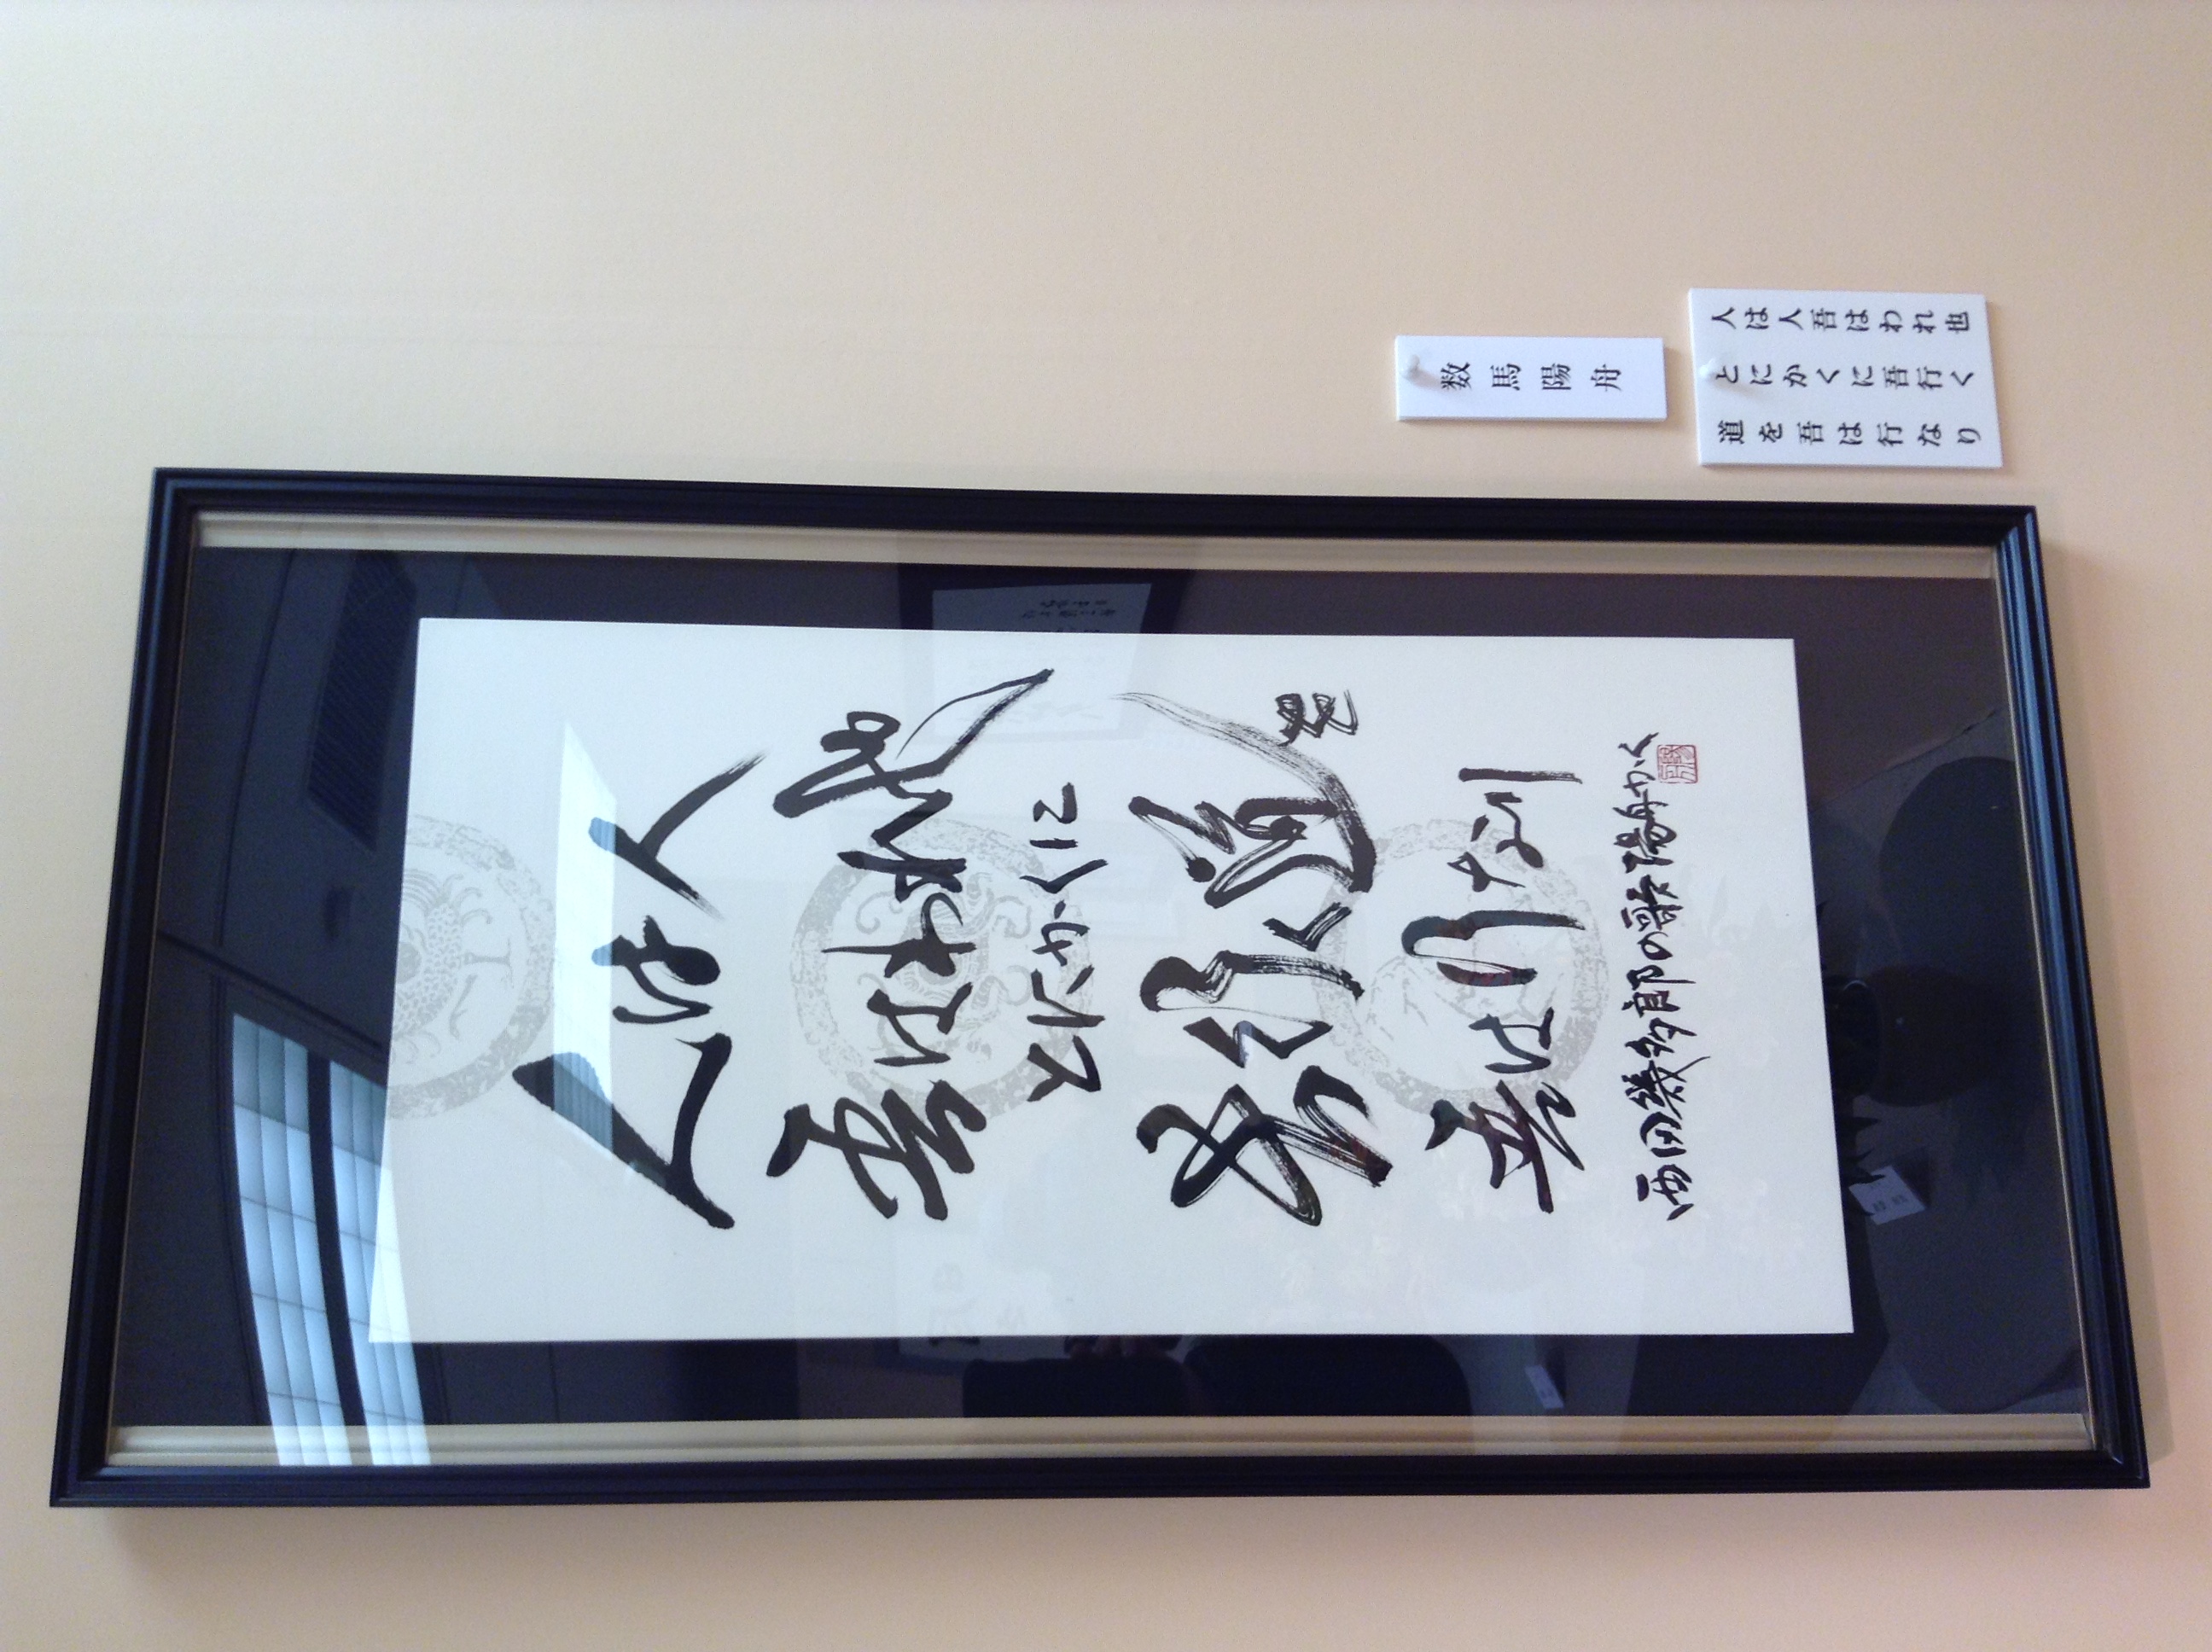 人は人
吾はわれ也
とにかくに
吾行く道を
吾は行なり
西田幾多郎の歌 陽舟かく
人は人吾はわれ也
とにかくに吾行く
道を吾は行なり
数馬陽舟